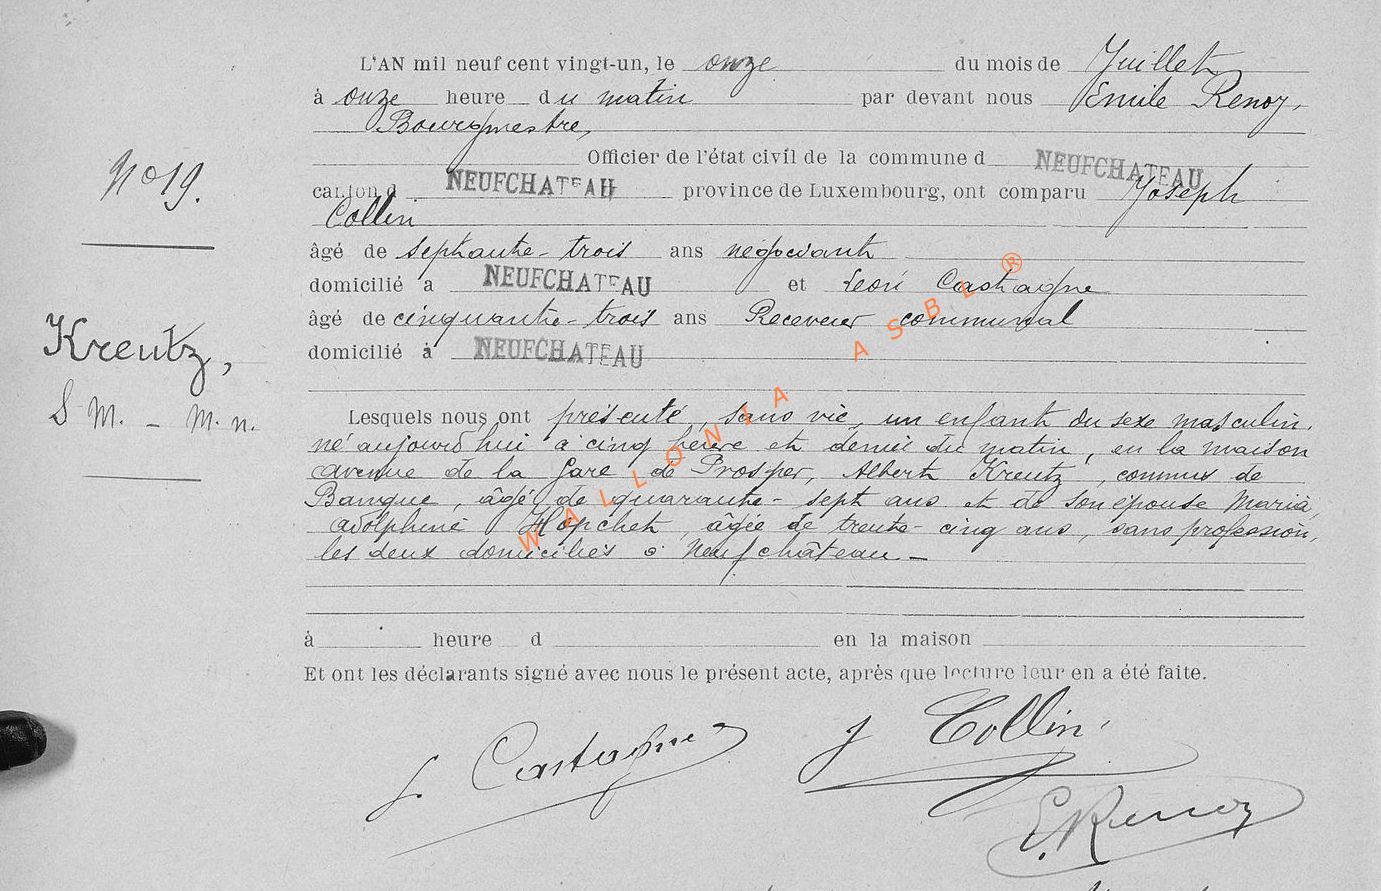 L'AN mil neuf cent vingt-un, le onze du mois de Juillet
à onze heure du matin par devant nous Emile Renoz,
Bourgmestre,
Officier de l'état civil de la commune d NEUFCHATEAU
canton d NEUFCHATEAU province de Luxembourg, ont comparu Joseph
Nº 19.
Collin
âgé de septante-trois ans négociant
domicilié à NEUFCHATEAU et Léon Castagne
âgé de cinquante-trois ans Receveur communal
domicilié à NEUFCHATEAU
Kreutz,
S M. - M. n.
Lesquels nous ont présenté sans vie, un enfant du sexe masculin,
né aujourd'hui à cinq heure et demie du matin, en la maison
avenue de la Gare de Prosper, Albert Kreutz, commis de
Banque, âgé de quarante-sept ans et de son épouse Maria,
Adolphine Hopchet, âgée de trente-cinq ans, sans profession,
les deux domiciliés à Neufchâteau -
à heure d en la maison
Et ont les déclarants signé avec nous le présent acte, après que lecture leur en a été faite.
L Castagne J Collin
E. Renoz
WALLONIA ASBL ®